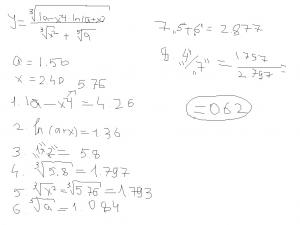 y = ∛(|a-x⁴| ln(a+x)) / (∛x² + ⁵√a)
a = 1.50
x = 2.40 5 76
1. |a - x⁴| = 4 26
2. ln(a+x) = 1 36
3 "1·2" = 5.8
4. ∛5.8 = 1.797
5 ∛x² = ∛5 76 = 1.793
6 ⁵√a = 1.084
7 „5+6" = 2 877
8 "4"/"7" = 1.757 / 2 797 =
= 062